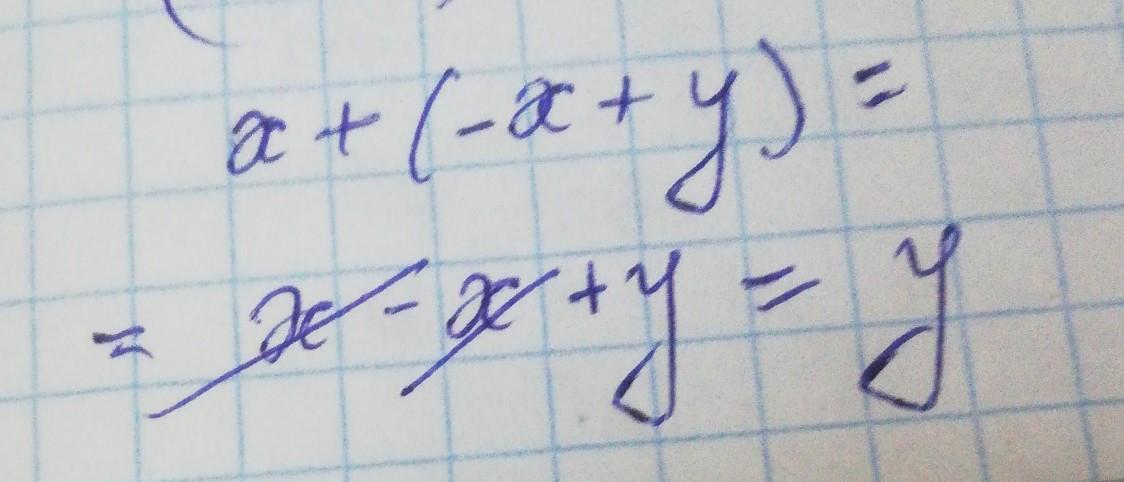 x + (-x + y) =
= x - x + y = y